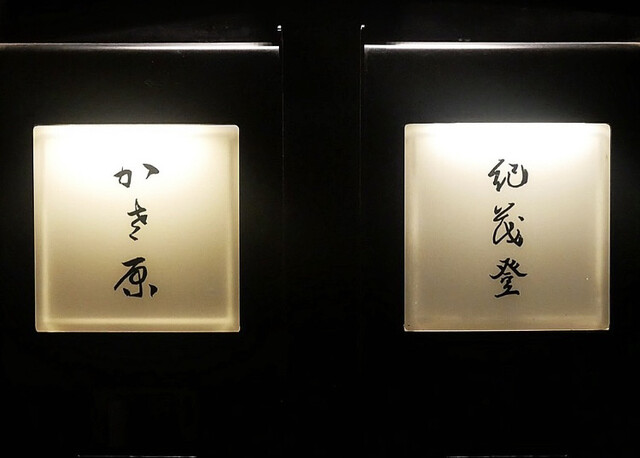 かき原
紀茂登